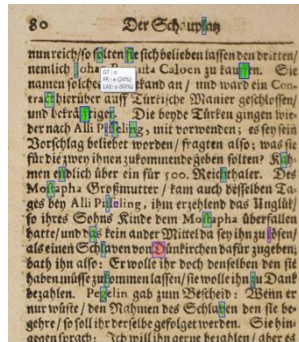 80 Der Schauplatz
nun reich/so solten sie sich belieben lassen den dritten/
nemlich Joha ita Caloen zu kauffen. Sie
namen solches kand an / und ward ein Con-
tract hierüber auff Türkische Manier geschlossen/
und bekräftiget. Die beyde Türken gingen wie-
der nach Alli Pisseling, mit vorwenden; es sey sein
Vorschlag beliebet worden/ fragten also; was sie
für die zwey ihnen zukommende geben solten? Kah-
men endlich über ein für 500. Reichsthaler. Des
Mostapha Großmutter / kam auch desselben Ta-
ges bey Alli Pisseling, ihm erzehlend das Unglük/
so ihres Sohns Kinde dem Mostapha überfallen
hatte/ und das kein ander Mittel da sey ihn zu lösen/
als einen Schlaven von Dünkirchen dafür zugeben;
bath ihn also: Er wolle ihr doch denselben den sie
haben müsse zukommen lassen/ sie wolle ihn zu Dank
bezahlen. Pegelin gab zum Bescheid: Wenn er
nur wüste / den Nahmen des Schlaven den sie be-
gehre / so soll ihr derselbe gefolget werden. Sie hin-
gegen sprach: Ich will ihn gerne bezahlen / aber es
GT: o
FR: e (24%)
LAE: o (93%)